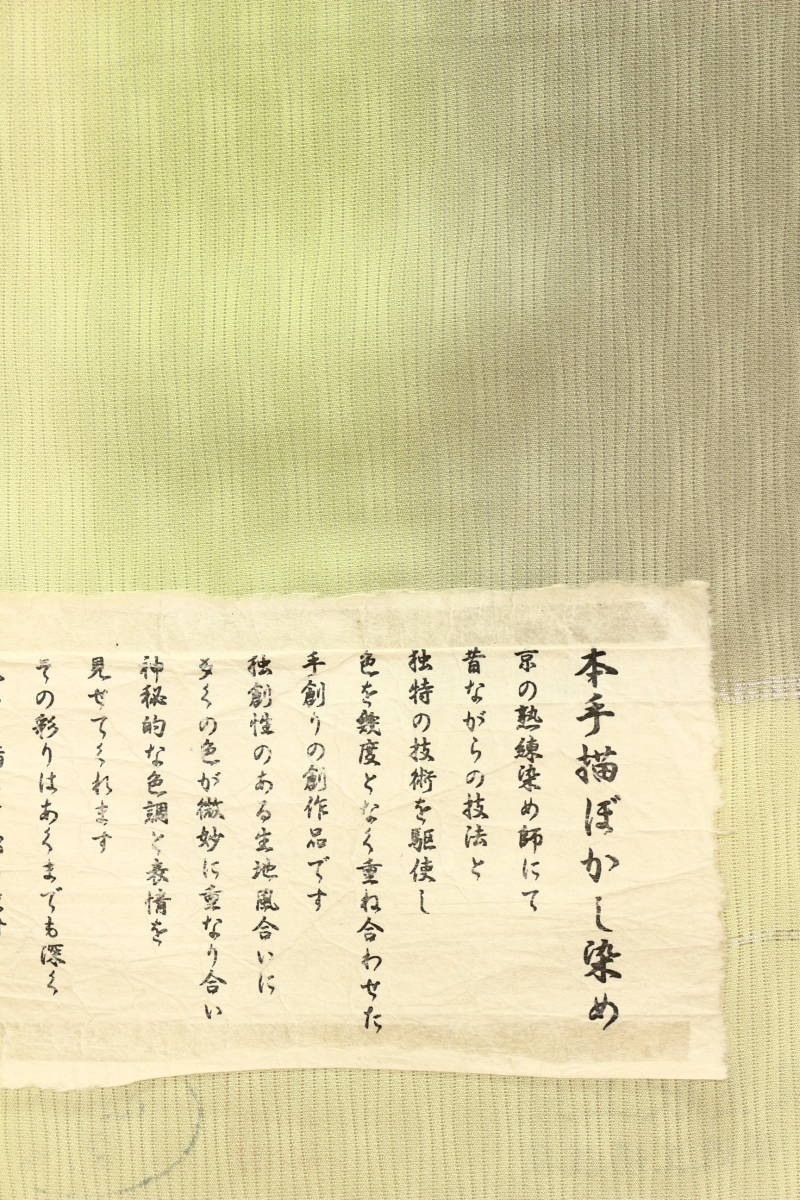 本手描ぼかし染め
京の熟練染め師にて
昔ながらの技法と
独特の技術を駆使し
色を幾度となく重ね合わせた
手創りの創作品です
独創性のある生地風合いに
多くの色が微妙に重なり合い
神秘的な色調と表情を
見せてくれます
その彩りはあくまでも深く